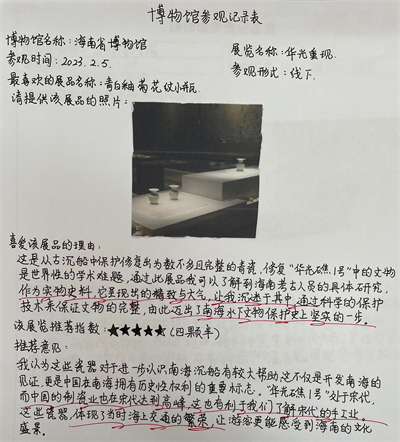 博物馆参观记录表
博物馆名称：海南省博物馆
展览名称：华光重现.
参观时间：2023.2.5.
参观形式：线下.
最喜欢的展品名称：青白釉菊花纹小瓶.
请提供该展品的照片：
喜爱该展品的理由：
这是从古沉船中保护修复出为数不多且完整的青瓷，修复“华光礁1号”中的文物
是世界性的学术难题，通过此展品我可以了解到海南考古人员的具体石研究，
作为实物史料，它呈现出的精致与大气，让我沉迷于其中，通过科学的保护
技术来保证文物的完整，由此迈出了南海水下文物保护史上坚实的一步。
该展览推荐指数：★★★★⯪（四颗半）
推荐意见：
我认为这些瓷器对于进一步认识南海沉船有较大帮助这不仅是开发南海的
见证，更是中国在南海拥有历史性权利的重要标志。“华光礁1号”处于宋代，
而中国的制瓷业也在宋代达到高峰，这也有利于我们了解宋代的手工业。
这些瓷器，体现了当时海上交通的繁荣，让游客更能感受到海南的文化
盛果。